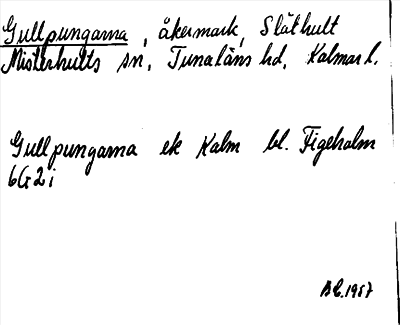 Gullpungarna, åkermark, Släthult
Misterhults sn, Tunaläns hd, Kalmar l.
Gullpungarna ek Kalm bl. Figeholm
6G2i
1957